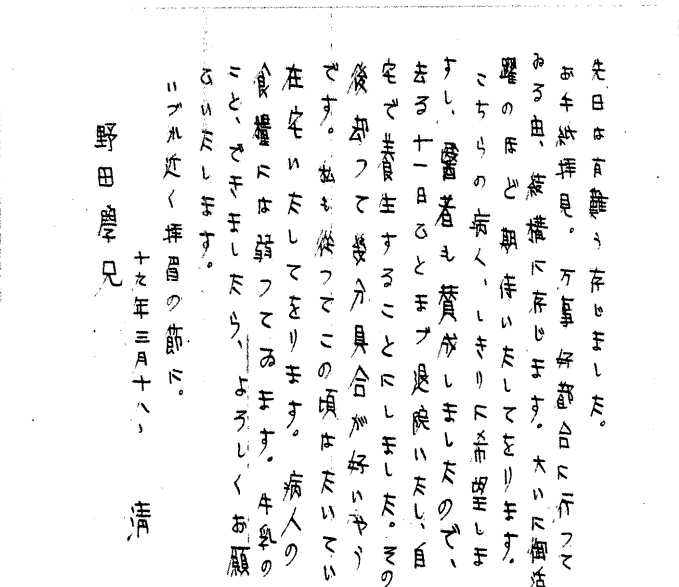 先日は有難う存じました。
お手紙拝見。万事好都合に行つて
ゐる由、結構に存じます。大いに御活
躍のほど期待いたしてをります。
こちらの病人、しきりに希望しま
すし、醫者も賛成しましたので、
去る十一日ひとまづ退院いたし、自
宅で養生することにしました。その
後却つて幾分具合が好いやう
です。私も従つてこの頃はたいてい
在宅いたしてをります。病人の
食糧には弱つてゐます。牛乳の
こと、できましたら、よろしくお願
ひいたします。
いづれ近く拝眉の節に。
十九年三月十八、
清
野田學兄